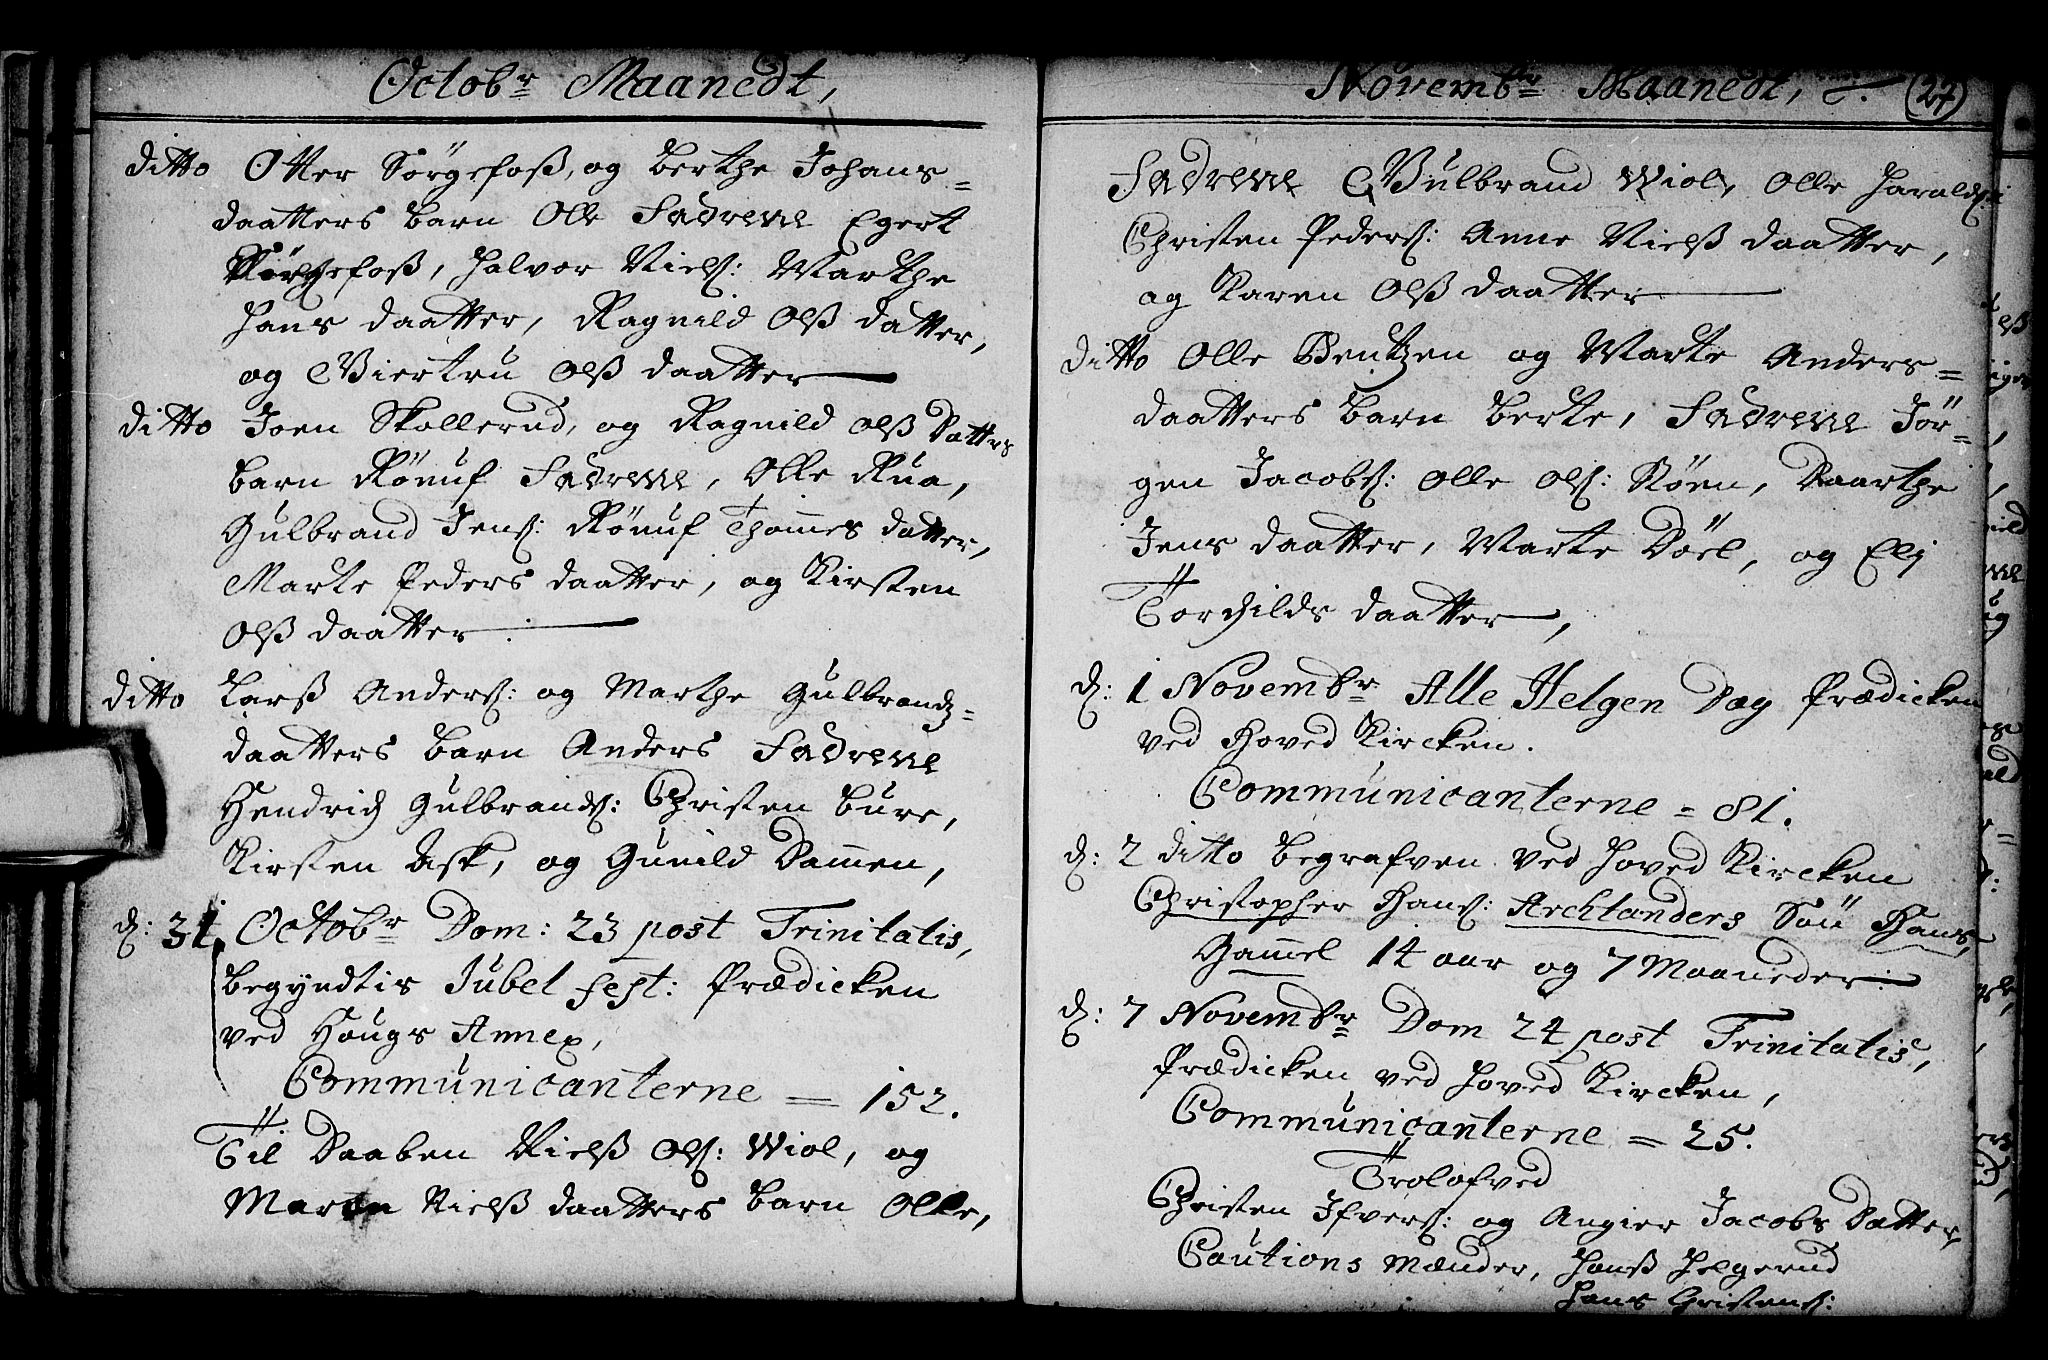 Octobr Maanedt,
ditto Otter Sörgefoß, og Berthe Johans=
daatters barn Olle Fadrene Egert
Sörgefoß, Halvor Nielß: Marthe
Hans daatter, Ragnild Olß datter,
og Giertru Olß daatter
ditto Joen Skollerud, og Ragnild Olß Datters
barn Rönuf Fadrene, Olle Rua,
Gulbrand Jenß: Rönuf Thommes datter,
Marte Peders daatter, og Kirsten
Olß daatter
ditto Larß Anderß: og Marthe Gulbrandz=
daatters barn Anders Fadrene
Hendrich Gulbrandß: Christen Bure,
Kirsten Ask, og Gunild Dammen,
d: 31. Octobr Dom: 23 post Trinitatis,
begyndtis Jubel fest: Prædicken
ved Hougs Annex,
Communicanterne = 152.
Til Daaben Nielß Olß: Wiol, og
Maren Nielß daatters barn Olle,
Novembr Maanedt, (27)
Fadrene Gulbrand Wiol, Olle Haraldß:
Christen Pederß: Anne Nielß daatter,
og Karen Olß daatter
ditto Olle Bentzen og Marte Anders=
daatters barn Berte, Fadrene Jör=
gen Jacobß: Olle Olß: Röen, Daarthe
Jens daatter, Marte Döel, og Elj
Torchilds daatter,
d: 1 Novembr Alle Helgen Dag Prædicken
ved Hoved Kircken.
Communicanterne = 81.
d: 2 ditto begrafven ved Hoved Kircken
Christopher Hanß: Archtanders Sön Hans,
Gammel 14 aar og 7 Maaneder
d: 7 Novembr Dom 24 post Trinitatis,
Prædicken ved Hoved Kircken,
Communicanterne = 25.
Trolofved
Christen Ifverß: og Angier Jacobs Datter,
Cautions Mænder, Hanß Helgerud
Hans Cristenß: